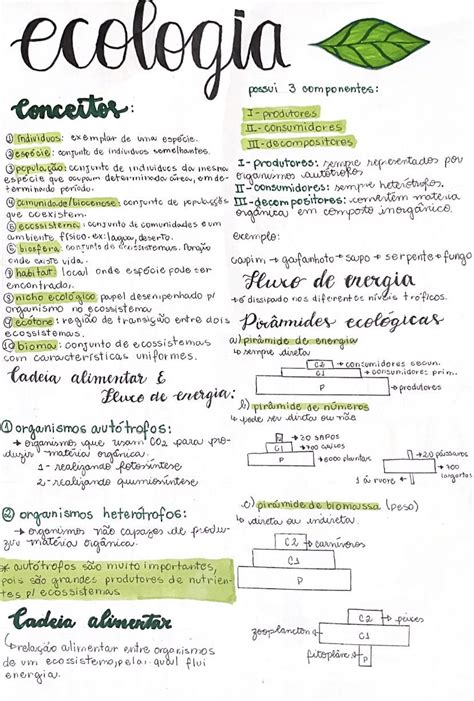 ecologia
Conceitos:
① indivíduos: exemplar de uma espécie.
② espécie: conjunto de indivíduos semelhantes.
③ população: conjunto de indivíduos da mesma
espécie que ocupam determinada área, em de-
terminado período.
④ comunidade/biocenose: conjunto de populações
que coexistem.
⑤ ecossistema: conjunto de comunidades e um
ambiente físico. ex: lagoa, deserto.
⑥ biosfera: conjunto de ecossistemas. Porção
onde existe vida.
⑦ habitat: local onde espécie pode ser
encontrada.
⑧ nicho ecológico: papel desempenhado p/
organismo no ecossistema
⑨ ecotone: região de transição entre dois
ecossistemas.
⑩ bioma: conjunto de ecossistemas
com características uniformes.
Cadeia alimentar E
Fluxo de energia:
① organismos autótrofos:
→ organismos que usam CO2 para pro-
duzir matéria orgânica.
1- realizando fotossíntese
2- realizando quimiossíntese
② organismos heterótrofos:
→ organismos não capazes de produ-
zir matéria orgânica.
* autótrofos são muito importantes,
pois são grandes produtores de nutrien-
tes p/ ecossistemas
Cadeia alimentar
↳ relação alimentar entre organismos
de um ecossistema, pela qual flui
energia.
possui 3 componentes:
I - produtores
II - consumidores
III - decompositores
I - produtores: sempre representados por
organismos autótrofos
II - consumidores: sempre heterótrofos.
III - decompositores: convertem matéria
orgânica em composto inorgânico.
exemplo:
capim → gafanhoto → sapo → serpente → fungo
Fluxo de energia
→ é dissipado nos diferentes níveis tróficos.
Pirâmides ecológicas
a) pirâmide de energia
↳ sempre direta
C2 → consumidores secun.
C1 → consumidores prim.
P → produtores
b) pirâmide de números
↳ pode ser direta ou não
→ 20 sapos
C1
P → 6000 plantas
→ 20 pássaros
700
lagartas
1 árvore ←
c) pirâmide de biomassa (peso)
↳ direta ou indireta.
C2 → carnívoros
C1
P
C2 → peixes
zooplancton ← C1
fitoplânc. ← P